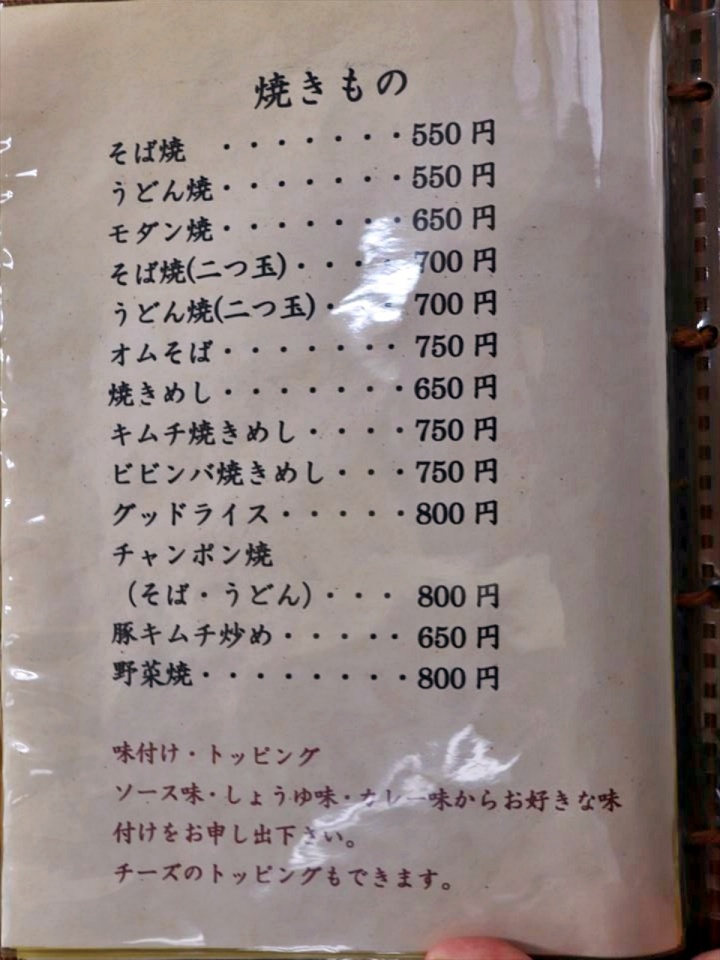 焼きもの
そば焼　・・・・・・・550 円
うどん焼・・・・・・・550 円
モダン焼・・・・・・・650 円
そば焼(二つ玉)・・・・700 円
うどん焼(二つ玉)・・・700 円
オムそば・・・・・・・750 円
焼きめし・・・・・・・650 円
キムチ焼きめし・・・・750 円
ビビンバ焼きめし・・・750 円
グッドライス・・・・・800 円
チャンポン焼
（そば・うどん）・・・800 円
豚キムチ炒め・・・・・650 円
野菜焼・・・・・・・・800 円
味付け・トッピング
ソース味・しょうゆ味・カレー味からお好きな味
付けをお申し出下さい。
チーズのトッピングもできます。